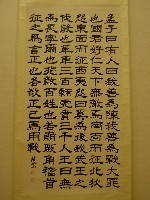 孟子曰有人曰我善為陳我善為戰大罪
也國君好仁天下無敵焉南面而征北狄
怨東面而征西夷怨曰奚為後我武王之
伐殷也革車三百兩虎賁三千人王曰無
畏寧爾也非敵百姓也若崩厥角稽首
征之為言正也各欲正己焉用戰